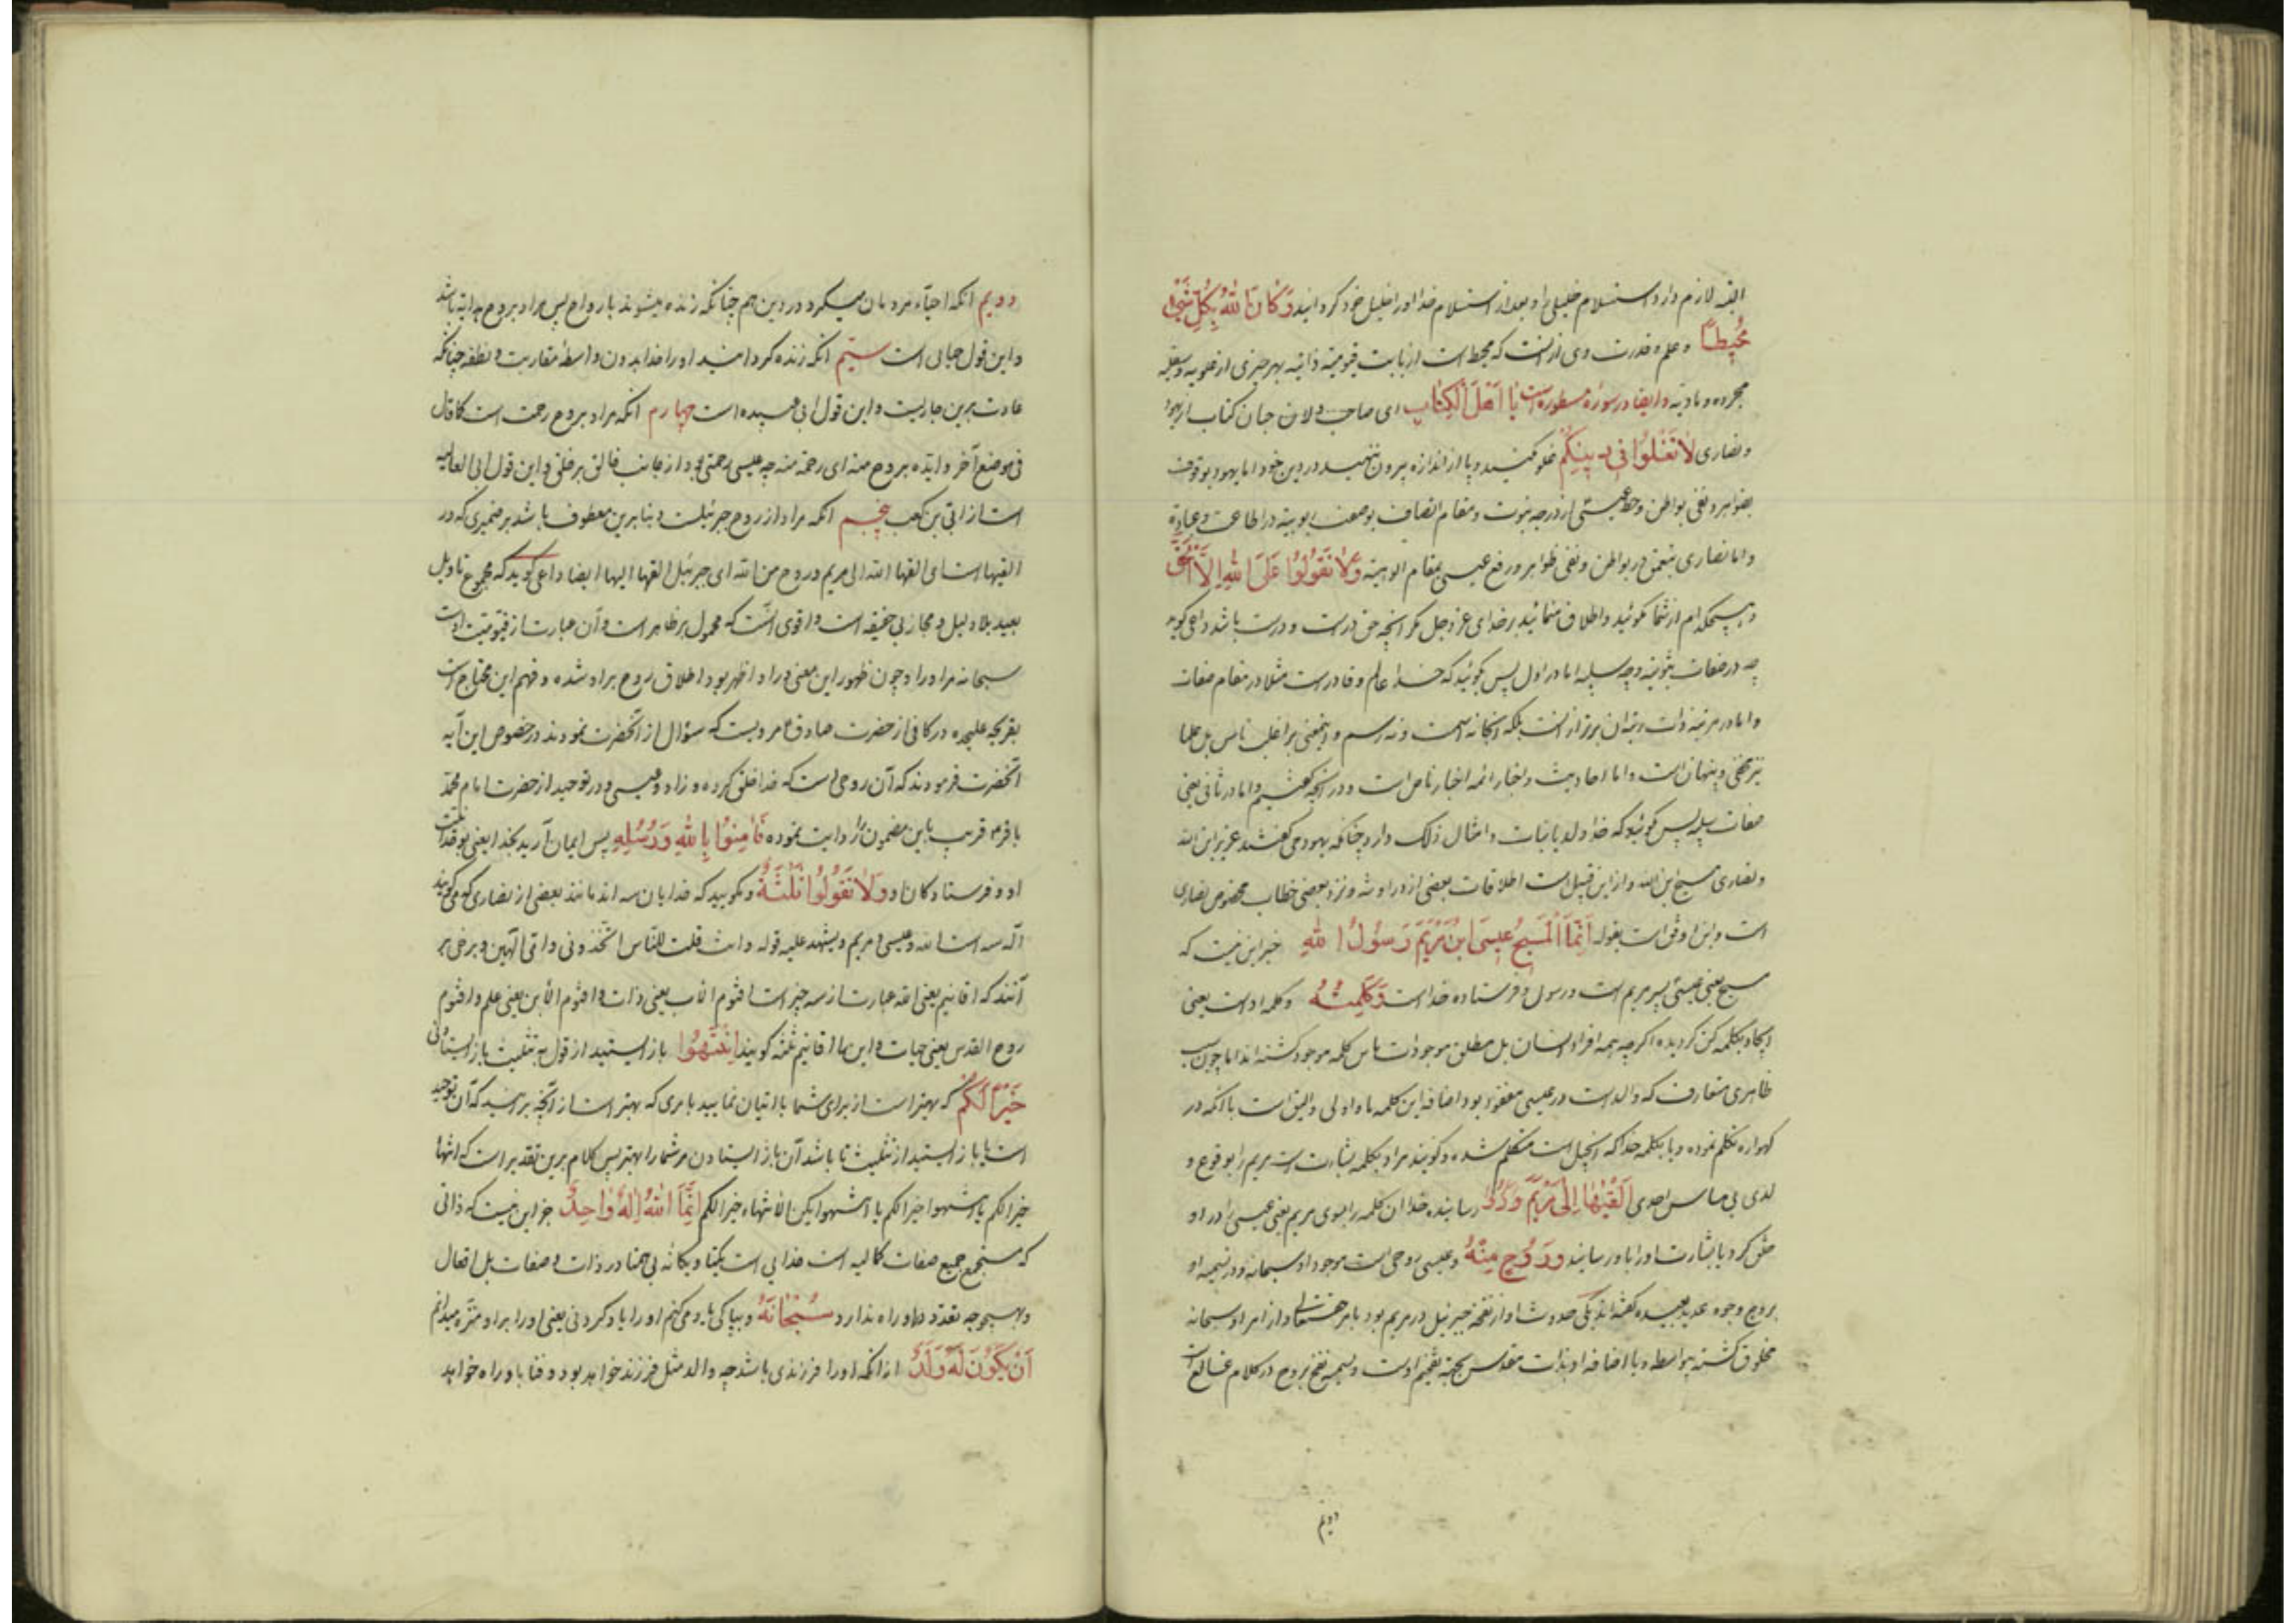 الیه لازم دارد استسلام خلیلی را و بعد از استسلام خدا او را خلیل خود گردانید وَكَانَ اللهُ بِكُلِّ شَيْءٍ
مُحِيطًا و علم و قدرت وی از آنست که محیط است از بابت قیومیة ذاتیه بهر چیزی از علویه و سفلیه
مجرده و مادیه و ایضا در سوره مسطوره است يَا أَهْلَ الْكِتَابِ ای صاحب دلان جان کتاب از یهود
و نصاری لَا تَغْلُوا فِي دِينِكُمْ غلو مکنید و پا از اندازه بیرون ننهید در دین خود اما یهود بوقوف
بظواهر و نفی بواطن و حط عیسی از درجه نبوت و مقام اتصاف بوصف ربوبیة در اطاعت و عبادة
و اما نصاری بتعمق در بواطن و نفی ظواهر و رفع عیسی بمقام الوهیة وَلَا تَقُولُوا عَلَى اللهِ إِلَّا الْحَقَّ
و هیچکدام از شما مگوئید و اطلاق منمائید بر خدای عز و جل مگر آنچه حق است و درست باشد داعی گوید
چه در صفات ثبوتیه و چه سلبیه اما در اول پس بگوئید که خدا عالم و قادر است مثلا در مقام صفات
و اما در مرتبه ذات رتبه آن برتر از آنست بلکه آنجا نه اسمست و نه رسم و اینمعنی بر اغلب ناس بل علما
نیز مخفی و پنهان است و اما احادیث و اخبار ائمه اخیار ناص است و در آنچه گفتیم و اما در ثانی یعنی
صفات سلبیه پس مگوئید که خدا ولد یا بنات و امثال ذلک دارد چنانکه یهود می گفتند عزیر ابن الله
و نصاری مسیح ابن الله و از این قبیل است اطلاقات بعضی از و نزد بعضی خطاب مخصوص نصاری
است و این اوفق است بقوله إِنَّمَا الْمَسِيحُ عِيسَى ابْنُ مَرْيَمَ رَسُولُ اللهِ جز این نیست که
مسیح یعنی عیسی پسر مریم است و رسول و فرستاده خداست وَكَلِمَتُهُ و کلمه اوست یعنی
ایجاد بکلمه کن گردیده اگر چه همه افراد انسان بل مطلق موجودات باین کلمه موجود گشته اند اما چون سبب
ظاهری متعارف که والد است در عیسی مفقود بود اضافه این کلمه باو اولی و الیق است با آنکه در
گهواره تکلم نموده و یا بکلمه خدا که انجیل است متکلم شده و گویند مراد بکلمه بشارت است مریم را بوقوع و
لدی بی مساس احدی أَلْقَاهَا إِلَى مَرْيَمَ رسانیده خدا آن کلمه را بسوی مریم یعنی عیسی را در او
خلق کرد یا بشارت او را باو رسانید وَرُوحٌ مِنْهُ و عیسی روحی است موجود از او سبحانه و در تسمیه او
بروح وجوه عدیده گفته اند یکی حدوث او از نفخه جبرئیل در مریم بود بامر حقتعالی و از امر او سبحانه
مخلوق گشته بواسطه و با اضافه او بذات مقدس بجهة تفخیم اوست و تسمیه نفخ بروح در کلام عرب شایع است
دویم
دویم آنکه احیاء مردمان میکرد در دین هم چنانکه زنده میشوند بارواح پس مراد بروح هدایة باشد
و این قول جبائی است سیم آنکه زنده گردانید او را خدا بدون واسطه مقاربت و نطفه چنانکه
عادت برین جاریست و این قول ابی عبیده است چهارم آنکه مراد بروح رحمت است کما قال
فی موضع آخر و ایده بروح منه ای رحمة منه چه عیسی رحمتی بود از جانب خالق بر خلق و این قول ابی العالیه
است از ابی بن کعب پنجم آنکه مراد از روح جبرئیلست و بنا برین معطوف باشد بر ضمیری که در
القیها است ای القیها الله الی مریم و روح من الله ای جبرئیل القها الیها ایضا داعی گوید که مجموع تاویل
بعید بلا دلیل و مجاز بی حقیقه است و اقوی آنست که محمول بر ظاهر است و آن عبارت از قیومیت اوست
سبحانه مر او را و چون ظهور این معنی در او اظهر بود اطلاق روح بر او شده و فهم این محتاج است
بقریحه علیحده در کافی از حضرت صادق ع مرویست که سؤال از آنحضرت نمودند در خصوص این آیه
آنحضرت فرمودند که آن روحی است که خدا خلق کرده در آدم و عیسی و در توحید از حضرت امام محمد
باقر ع قریب باین مضمون را روایت نموده فَآمِنُوا بِاللهِ وَرُسُلِهِ پس ایمان آرید بخدا یعنی بوحدانیت
او و فرستادگان او وَلَا تَقُولُوا ثَلَثَةٌ و مگویید که خدایان سه اند مانند بعضی از نصاری که می گویند
آله سه است الله و عیسی و مریم و یشهد علیه قوله ءانت قلت للناس اتخذونی و امی الهین و برخی بر
آنند که اقانیم یعنی الله عبارت از سه چیز است اقنوم الاب یعنی ذات و اقنوم الابن یعنی علم و اقنوم
روح القدس یعنی حیات و این ها را اقانیم ثلثه گویند انْتَهُوا باز ایستید از قول به تثلیث باز ایستادنی
خَيْرًا لَكُمْ که بهتر است از برای شما یا اتیان نمایید بامری که بهتر است از آنچه برآنید که آن توحید
است یا باز ایستید از تثلیث تا باشد آن باز ایستادن مر شما را بهتر پس کلام برین تقدیر است که انتهاء
خیرا لکم یا انتهوا خیرا لکم یا انتهوا یکن الانتهاء خیرا لکم إِنَّمَا اللهُ إِلَهٌ وَاحِدٌ جز این نیست که ذاتی
که مستجمع جمیع صفات کمالیه است خدایی است یکتا و یگانه بی همتا در ذات و صفات بل افعال
و بهیچوجه تعدد در او راه ندارد سُبْحَانَهُ و بپاکی یاد می کنم او را یاد کردنی یعنی او را مبرا و منزه میدانم
أَنْ يَكُونَ لَهُ وَلَدٌ از آنکه او را فرزندی باشد چه والد مثل فرزند خواهد بود و فنا باو راه خواهد